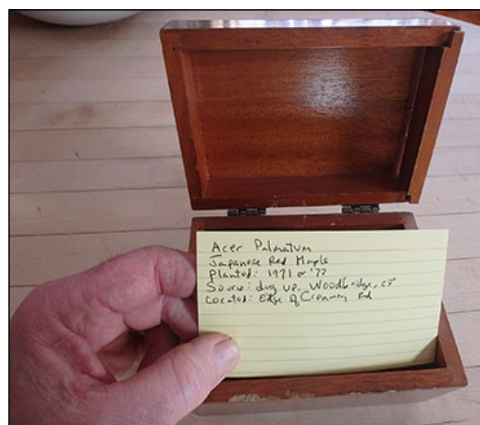 Acer Palmatum
Japanese Red Maple
Planted: 1971 or '72
Source: dug up, Woodbridge, CT
Located: Edge of Rd